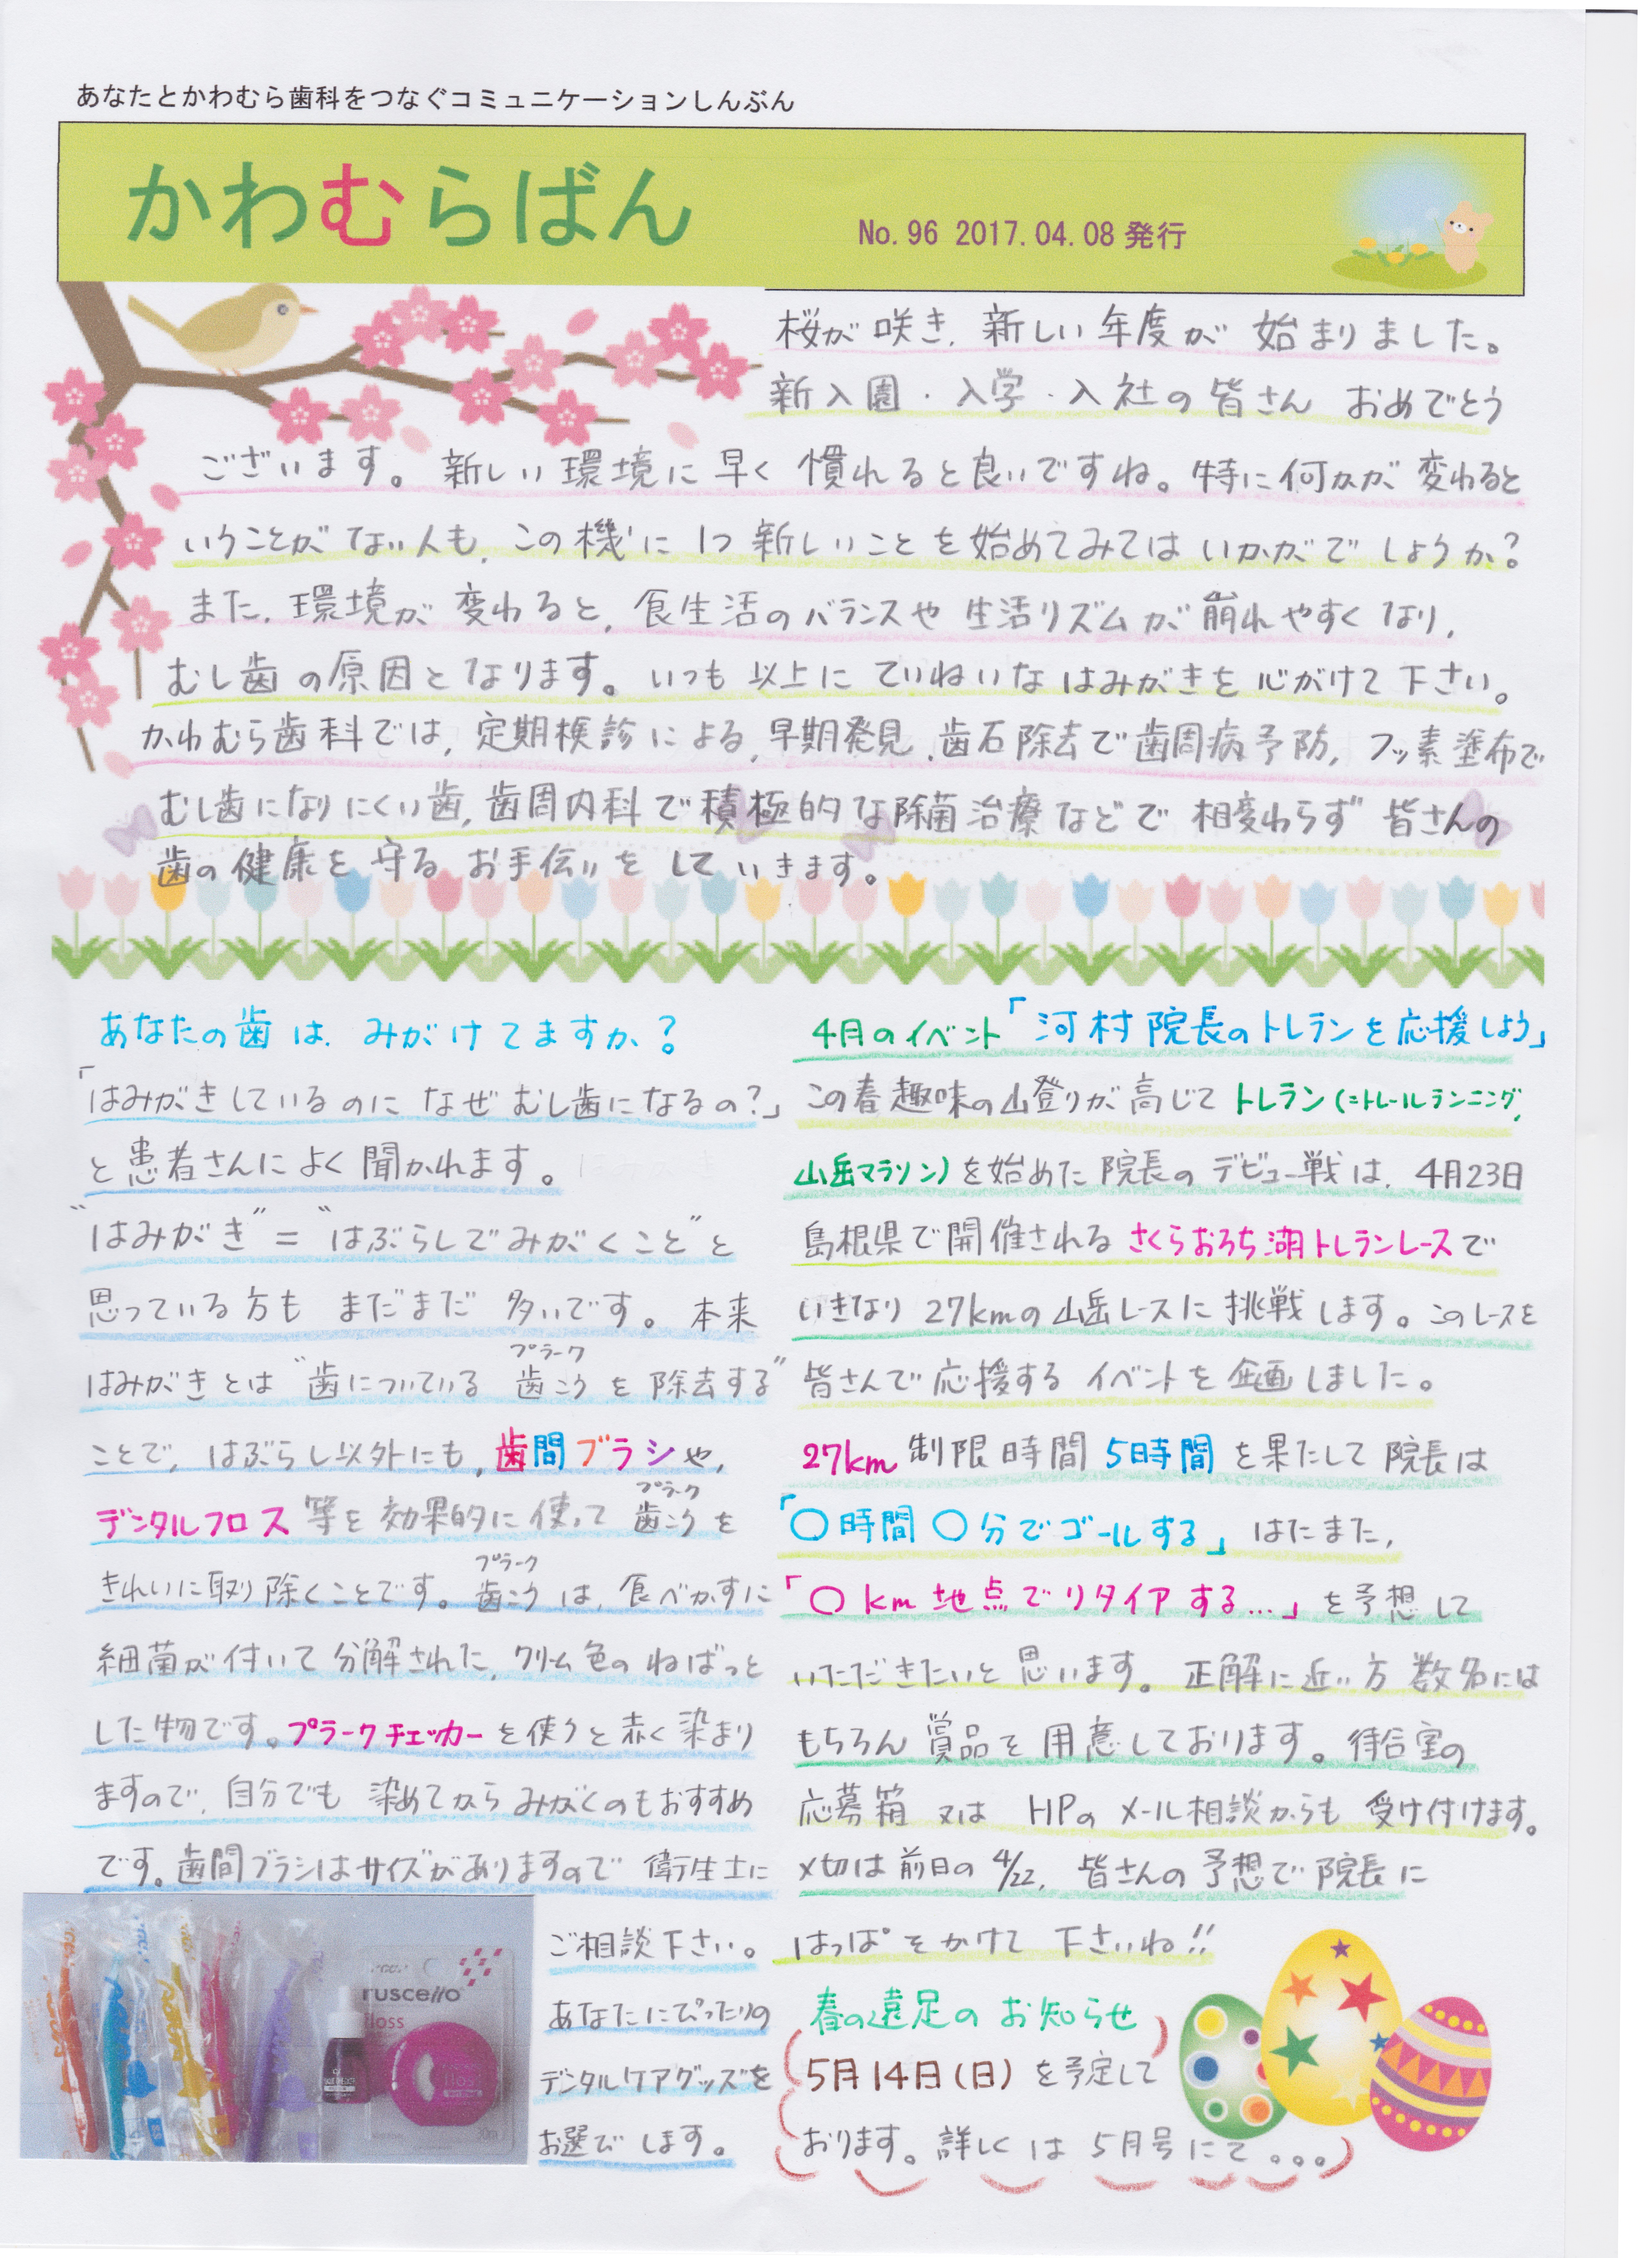 あなたとかわむら歯科をつなぐコミュニケーションしんぶん
かわむらばん
No.96 2017.04.08 発行
桜が咲き、新しい年度が始まりました。
新入園・入学・入社の皆さん おめでとう
ございます。新しい環境に早く慣れると良いですね。特に何かが変わると
いうことがない人も、この機に1つ新しいことを始めてみてはいかがでしょうか?
また、環境が変わると、食生活のバランスや生活リズムが崩れやすくなり、
むし歯の原因となります。いつも以上にていねいなはみがきを心がけて下さい。
かわむら歯科では、定期検診による、早期発見、歯石除去で歯周病予防、フッ素塗布で
むし歯になりにくい歯、歯周内科で積極的な除菌治療などで相変わらず皆さんの
歯の健康を守るお手伝いをしていきます。
あなたの歯は、みがけてますか?
「はみがきしているのになぜむし歯になるの?」
と患者さんによく聞かれます。
"はみがき"="はぶらしでみがくこと"と
思っている方もまだまだ多いです。本来
はみがきとは"歯についている歯こう(プラーク)を除去する"
ことで、はぶらし以外にも、歯間ブラシや、
デンタルフロス等を効果的に使って歯こう(プラーク)を
きれいに取り除くことです。歯こう(プラーク)は、食べかすに
細菌が付いて分解された、クリーム色のねばっと
した物です。プラークチェッカーを使うと赤く染まり
ますので、自分でも染めてからみがくのもおすすめ
です。歯間ブラシはサイズがありますので衛生士に
ご相談下さい。
あなたにぴったりの
デンタルケアグッズを
お選びします。
ruscello
floss
4月のイベント「河村院長のトレランを応援しよう」
この春趣味の山登りが高じてトレラン(=トレールランニング,
山岳マラソン)を始めた院長のデビュー戦は、4月23日
島根県で開催されるさくらおろち湖トレランレースで
いきなり27kmの山岳レースに挑戦します。このレースを
皆さんで応援するイベントを企画しました。
27km制限時間5時間を果たして院長は
「〇時間〇分でゴールする」はたまた、
「〇km地点でリタイアする…」を予想して
いただきたいと思います。正解に近い方数名には
もちろん賞品を用意しております。待合室の
応募箱又はHPのメール相談からも受け付けます。
〆切は前日の4/22、皆さんの予想で院長に
はっぱをかけて下さいね!!
春の遠足のお知らせ
5月14日(日)を予定して
おります。詳しくは5月号にて。。。